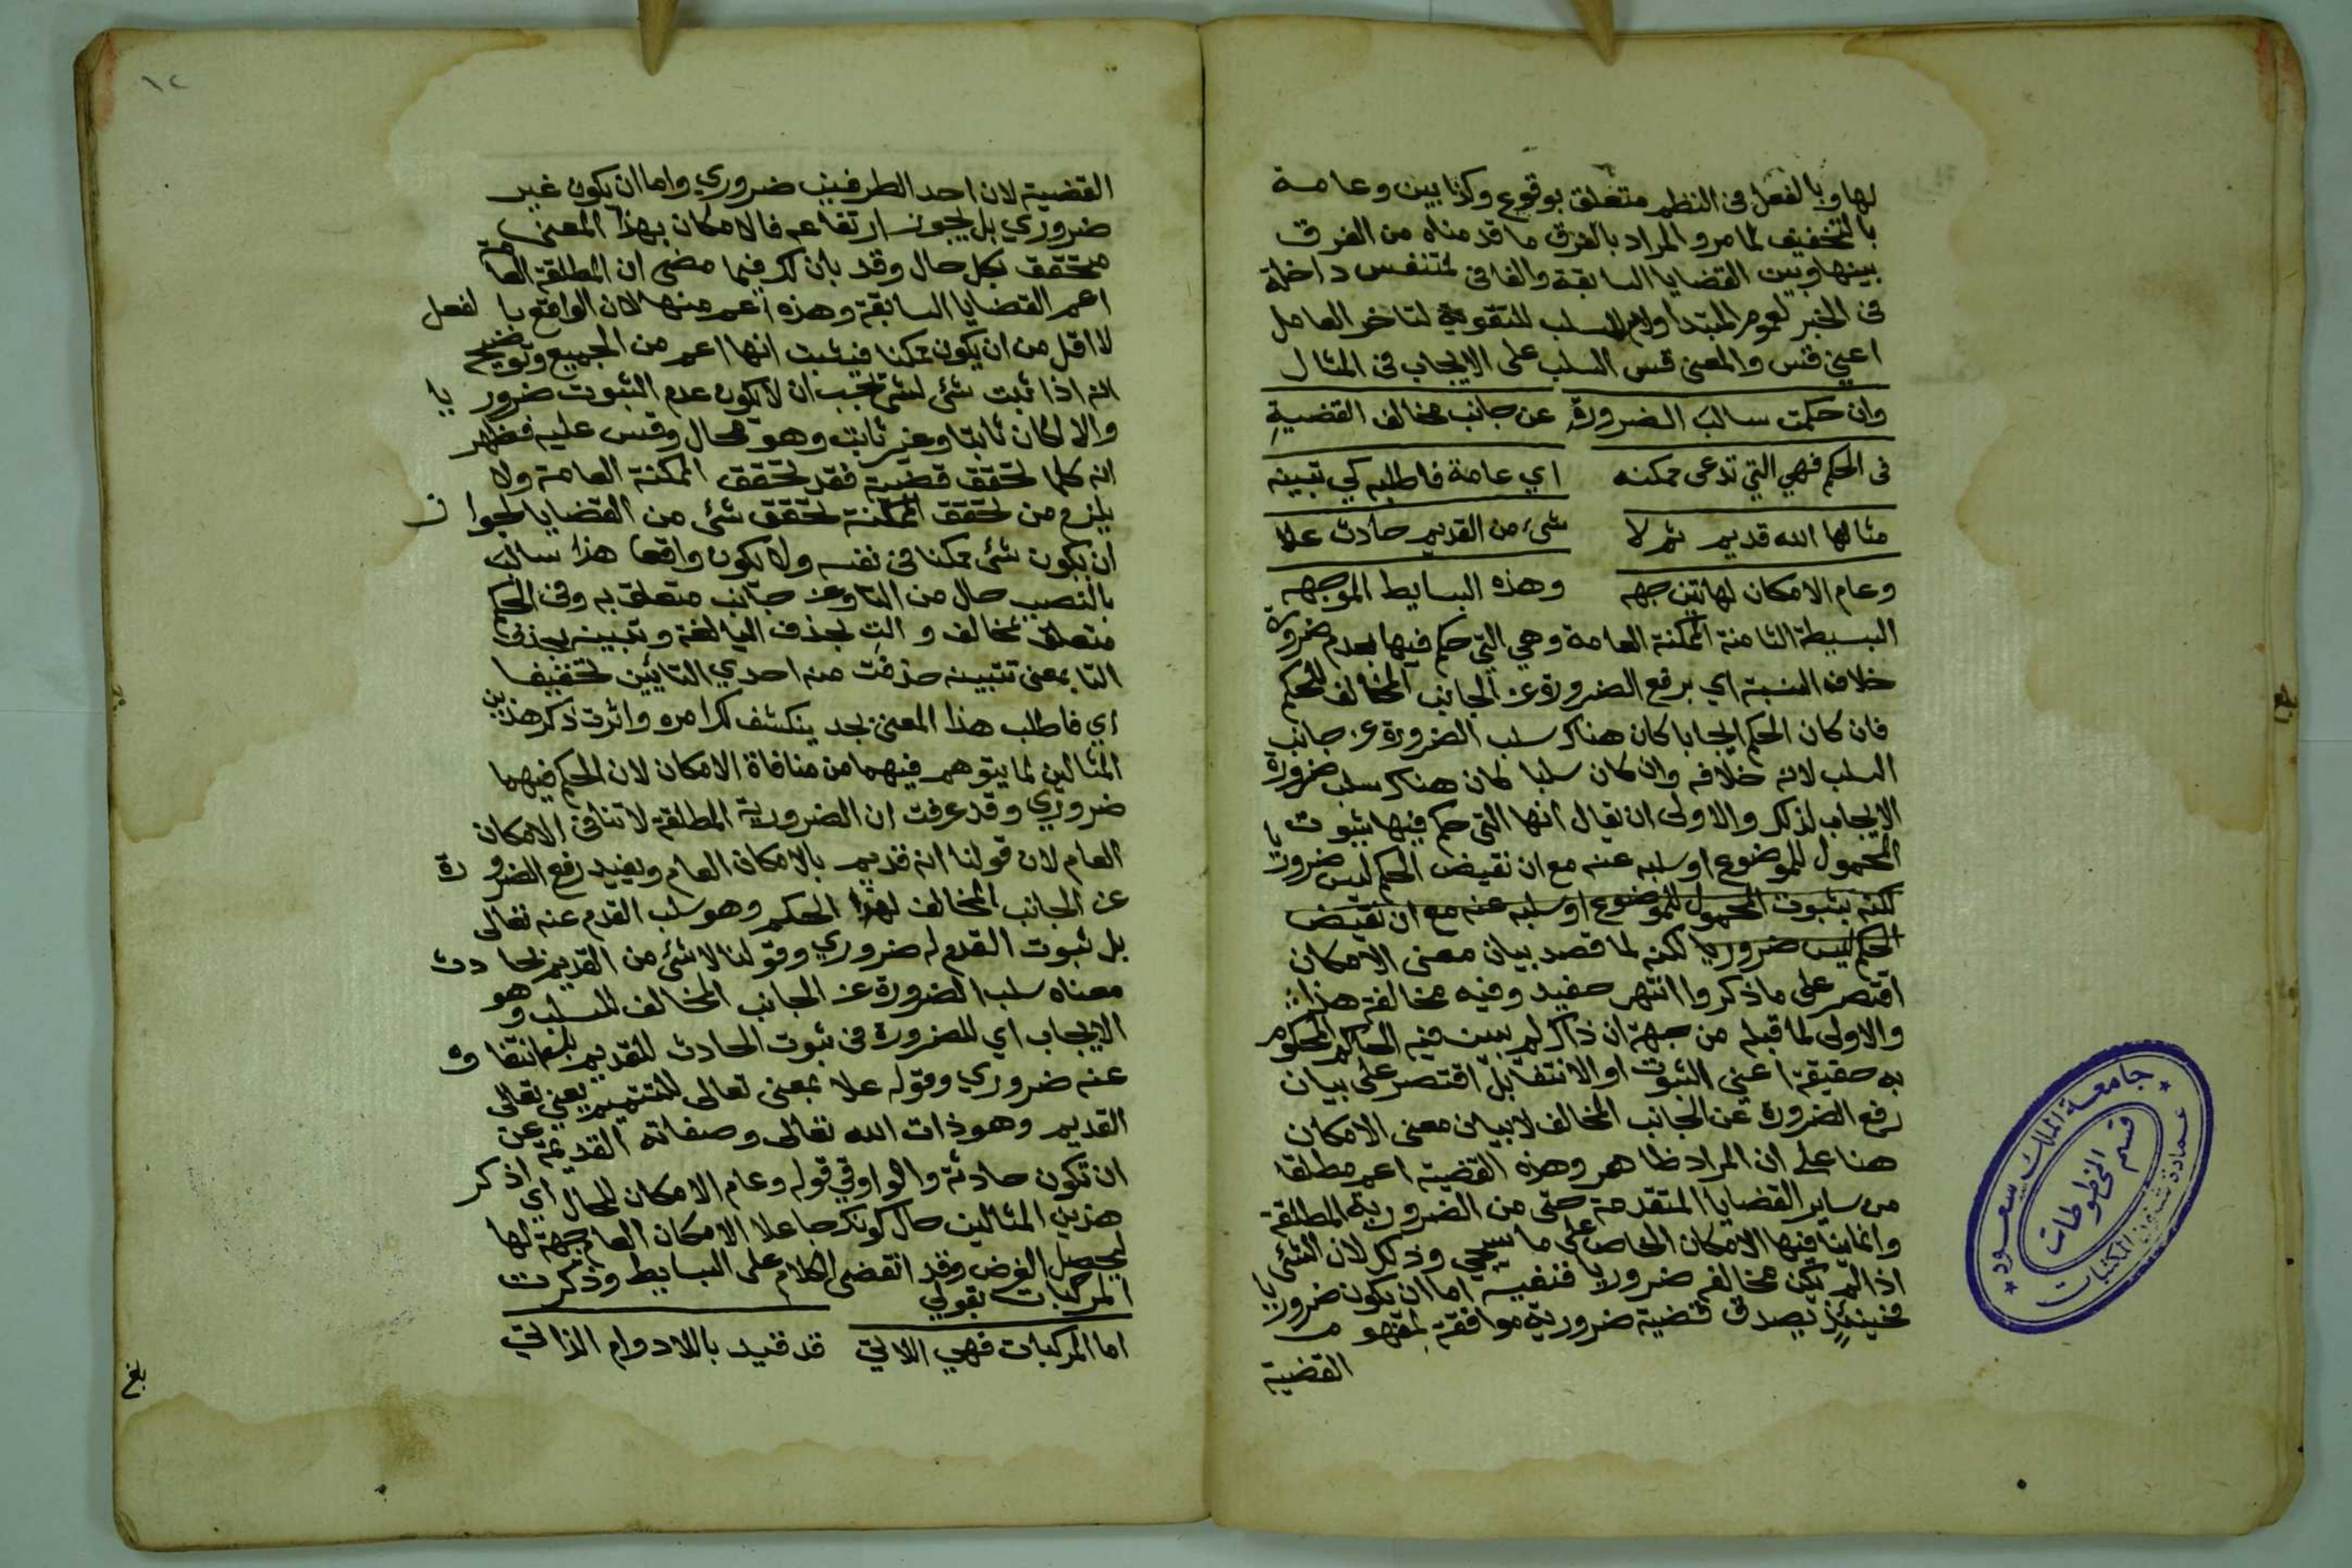 لها وبالفعل فى النظم متعلق بوقوع وكذا بين وعامة
بالتخفيف لما مر والمراد بالفرق ما قدمناه من الفرق
بينها وبين القضايا السابقة والفا فى لمتنفس داخلة
فى الخبر لعموم المبتدا ولام السلب للتقوية لتاخر العامل
اعني قس والمعنى قس السلب على الايجاب فى المثال
وان حكمت سالب الضرورة عن جانب مخالف القضية
فى الحكم فهي التي تدعى ممكنه اي عامة فاطلبه كي تبينه
مثالها الله قديم ثم لا شىء من القديم حادث علا
وعام الامكان لهاتين جهه وهذه البسايط الموجهه
البسيطة الثامنة الممكنة العامة وهي التي حكم فيها بعدم ضرورة
خلاف النسبة اي برفع الضرورة عن الجانب المخالف للحكم
فان كان الحكم ايجابا كان هناك سلب الضرورة عن جانب
السلب لانه خلافه وان كان سلبا كان هناك سلب ضرورة
الايجاب لذلك والاولى ان يقال انها التى حكم فيها بثبوت
المحمول للموضوع او سلبه عنه مع ان نقيض الحكم ليس ضروريا
لكنه بثبوت المحمول للموضوع او سلبه عنه مع ان نقيض
الحكم ليس ضروريا لكنه لما قصد بيان معنى الامكان
اقتصر على ما ذكروا انتهر حفيد وفيه مخالفة هذا
والاولى لما قبله من جهة ان ذاك لم يبين فيه الحاكم المحكوم
به حقيقة اعني الثبوت او الانتفا بل اقتصر على بيان
رفع الضرورة عن الجانب المخالف لا بيان معنى الامكان
هنا على ان المراد ظاهر وهذه القضية اعم مطلقا
من ساير القضايا المتقدمة حتى من الضرورية المطلقة
وانما ينافيها الامكان الخاص على ما سيجي وذلك لان الشئ
اذا لم يكن مخالفه ضروريا فنفسه اما ان يكون ضروريا
فحينئذ يصدق قضية ضرورية موافقة لمفهوم
القضية
بلغ
جامعة الملك سعود
قسم المخطوطات
عمادة شئون المكتبات
١٢
القضية لان احد الطرفين ضروري واما ان يكون غير
ضروري بل يجوز ارتفاعه فالامكان بهذا المعنى
متحقق بكل حال وقد بان لك فيما مضى ان المطلقة العامة
اعم القضايا السابقة وهذه اعم منها لان الواقع بالفعل
لا اقل من ان يكون ممكنا فيثبت انها اعم من الجميع وتوضيح
انه اذا ثبت شئ لشئ يجب ان لا يكون عدم الثبوت ضروريا
والا لكان ثابتا وغير ثابت وهو محال وقس عليه فظهر
انه كلما تحقق قضية فقد تحقق الممكنة العامة ولا
يلزم من تحقق الممكنة تحقق شئ من القضايا لجواز
ان يكون شئ ممكنا فى نفسه ولا يكون واقعا هذا سالب
بالنصب حال من التا وعن جانب متعلق به وفى الحكم
متعلق بمخالف والت بحذف اليا لغة وتبينه بحذف
التا بمعنى تتبينه حذفت منه احدي التائين تخفيفا
اي فاطلب هذا المعنى بجد ينكشف لك امره واثرت ذكر هذين
المثالين لما يتوهم فيهما من منافاة الامكان لان الحكم فيهما
ضروري وقد عرفت ان الضرورية المطلقة لا تنافى الامكان
العام لان قولنا انه قديم بالامكان العام ويفيد رفع الضرورة
عن الجانب المخالف لهذا الحكم وهو سلب القدم عنه تعالى
بل ثبوت القدم له ضروري وقولنا لا شئ من القديم بحادث
معناه سلب الضرورة عن الجانب المخالف للسلب وهو
الايجاب اي للضرورة فى ثبوت الحادث للقديم بل انتفاؤه
عنه ضروري وقوله علا بمعنى تعالى للتتميم يعني تعالى
القديم وهو ذات الله تعالى وصفاته القديمة عن
ان تكون حادثة والواو في قوله وعام الامكان للحال اي اذكر
هذين المثالين حال كونك جاعلا الامكان العام جهة لها
ليحصل الغرض وقد انقضى الكلام على البسايط وذكرت
المركبات بقولي
اما المركبات فهي اللاتي قد قيد باللادوام الذاتي
بلغ